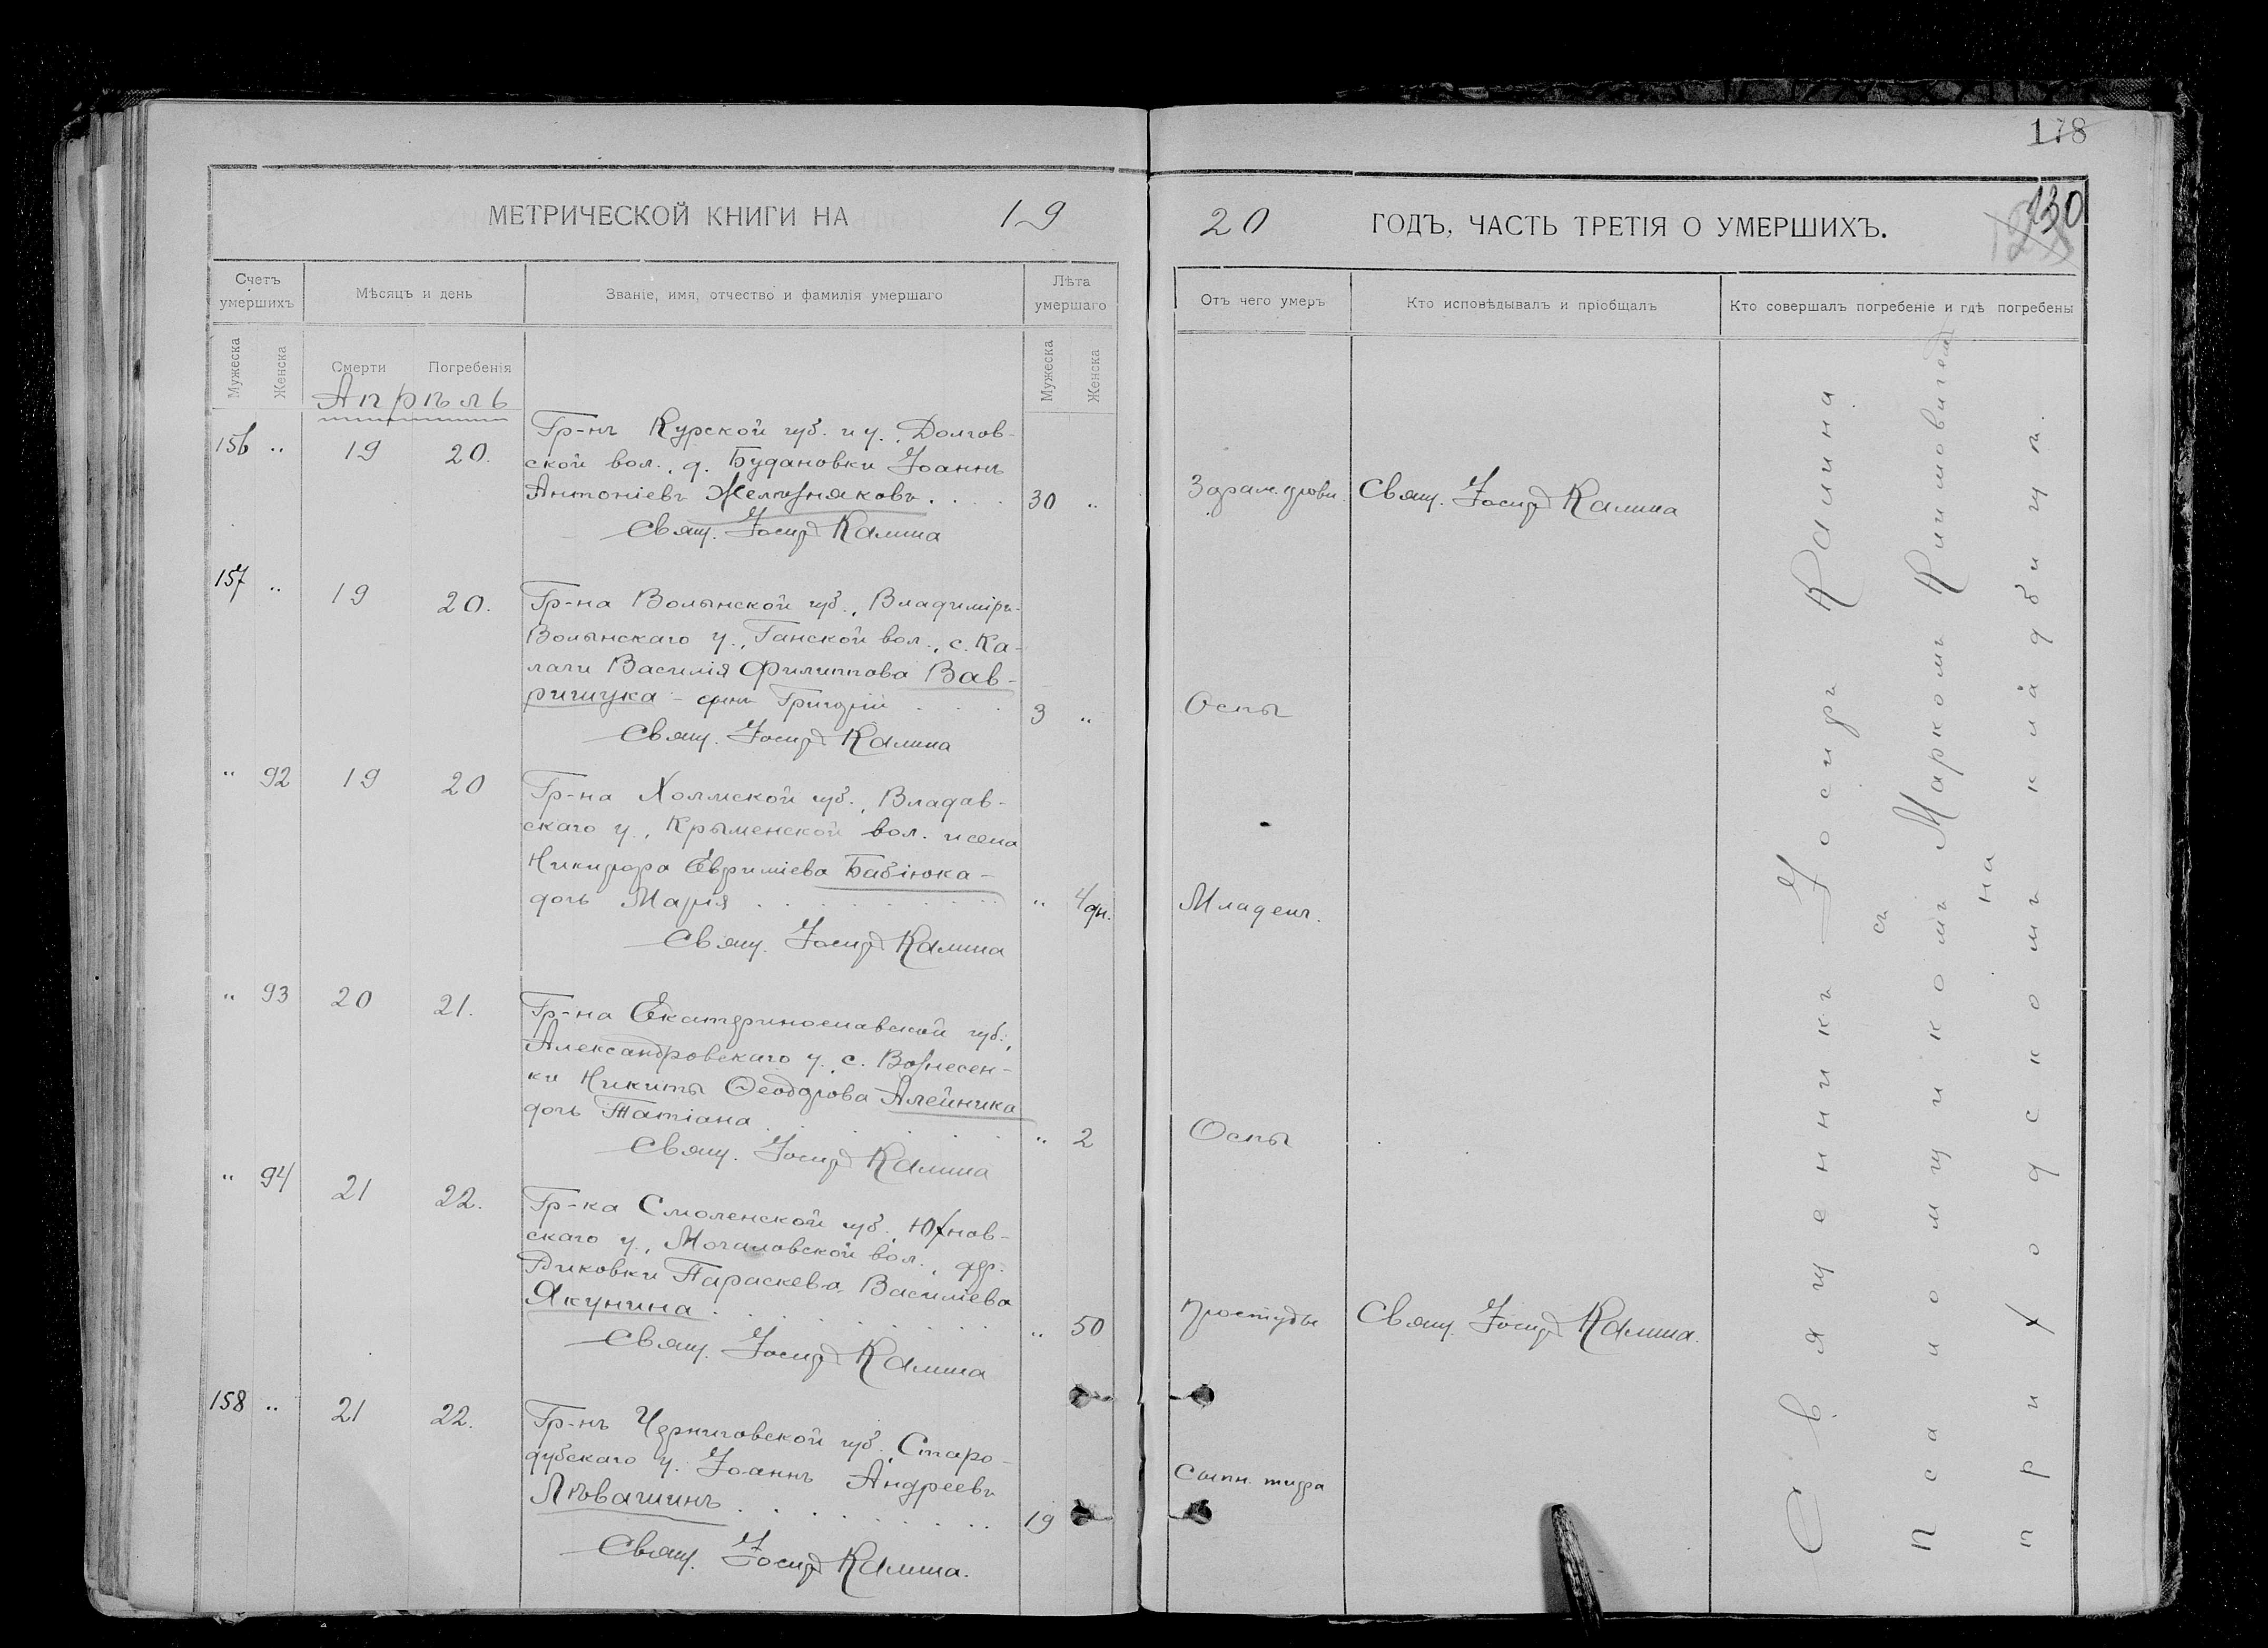 178
130
МЕТРИЧЕСКОЙ КНИГИ НА 19
20 ГОДЪ, ЧАСТЬ ТРЕТІЯ О УМЕРШИХЪ.
Счетъ умершихъ
Мѣсяцъ и день
Званіе, имя, отчество и фамилія умершаго
Лѣта умершаго
Отъ чего умеръ
Кто исповѣдывалъ и пріобщалъ
Кто совершалъ погребеніе и гдѣ погребены
Мужеска
Женска
Смерти
Погребенія
Мужеска
Женска
Апрѣль
156 " 19 20.
Гр-нъ Курской губ. и у., Долгов-
ской вол., д. Будановки Іоаннъ
Антоніевъ Желѣзняковъ. 30 " Зараж. крови. Свящ. Іосифъ Калина
Свящ. Іосифъ Калина
157 " 19 20.
Гр-на Волынской губ., Владиміръ-
Волынскаго у., Ганской вол., с. Ка-
лаги Василія Филиппова Вав-
ришука - сынъ Григорій 3 " Оспы
Свящ. Іосифъ Калина
" 92 19 20
Гр-на Холмской губ., Владав-
скаго у., Крыменской вол. и села
Никифора Евфиміева Бабіюка -
дочь Марія " 4 дн. Младенч.
Свящ. Іосифъ Калина
" 93 20 21.
Гр-на Екатеринославской губ.,
Александровскаго у., с. Вознесен-
ки Никиты Ѳеодорова Алейника
дочь Татіана " 2 Оспы
Свящ. Іосифъ Калина
" 94 21 22.
Гр-ка Смоленской губ., Юхнов-
скаго у., Мочаловской вол., дер.
Диковки Параскева Василіева
Якунина " 50 Простуды Свящ. Іосифъ Калина.
Свящ. Іосифъ Калина
158 " 21 22.
Гр-нъ Черниговской губ., Старо-
дубскаго у. Іоаннъ Андреевъ
Лѣвашинъ 19 Сыпн. тифа
Свящ. Іосифъ Калина.
Священникъ Іосифъ Калина
съ
псаломщикомъ Маркомъ
на
приходскомъ кладбищѣ.